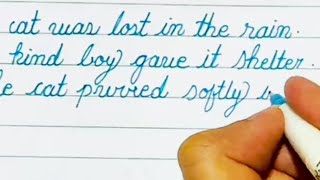 cat was lost in the rain.
kind boy gave it shelter.
cat purred softly